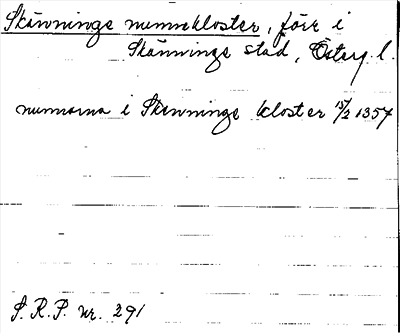 Skänninge nunnekloster, förr i
Skänninge stad, Österg. l.
nunnorna i Skeninge kloster 15/2 1357
S. R. P. nr. 291